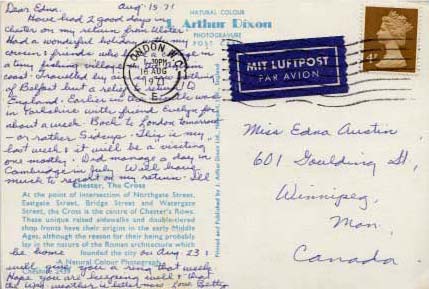 Dear Edna, Aug. 15 71
Have had 2 good days in
Chester on my return from Ulster.
Had a wonderful holiday with my
cousin & friends who have a house in
a tiny fishing village on the
coast. Travelled by air. Saw nothing
of Belfast but a relief to return to
England. Earlier in the week was
in Yorkshire with friend Evelyn for
about a week. Back to London tomorrow
- or rather Sidcup. This is my
last week & it will be a visiting
one mostly. Did manage a day in
Cambridge in July. Will have
much to report on my return. I'll
be home on Aug. 23 &
will give you a ring that week.
Hope you are keeping well & that
the weather is better now. Love Betty
NATURAL COLOUR
J. Arthur Dixon
PHOTOGRAVURE
POST CARD
LONDON W.C.
PM
16 AUG
1971
MIT LUFTPOST
PAR AVION
Miss Edna Austin
601 Goulding St,
Winnipeg,
Man.
Canada
Chester, The Cross
At the point of intersection of Northgate Street,
Eastgate Street, Bridge Street and Watergate
Street, the Cross is the centre of Chester's Rows.
These unique raised sidewalks and double-tiered
shop fronts have their origins in the early Middle
Ages, although the reason for their being probably
lay in the nature of the Roman architecture which
founded the city
A Natural Colour Photograph
Printed and Published by J. Arthur Dixon Ltd.